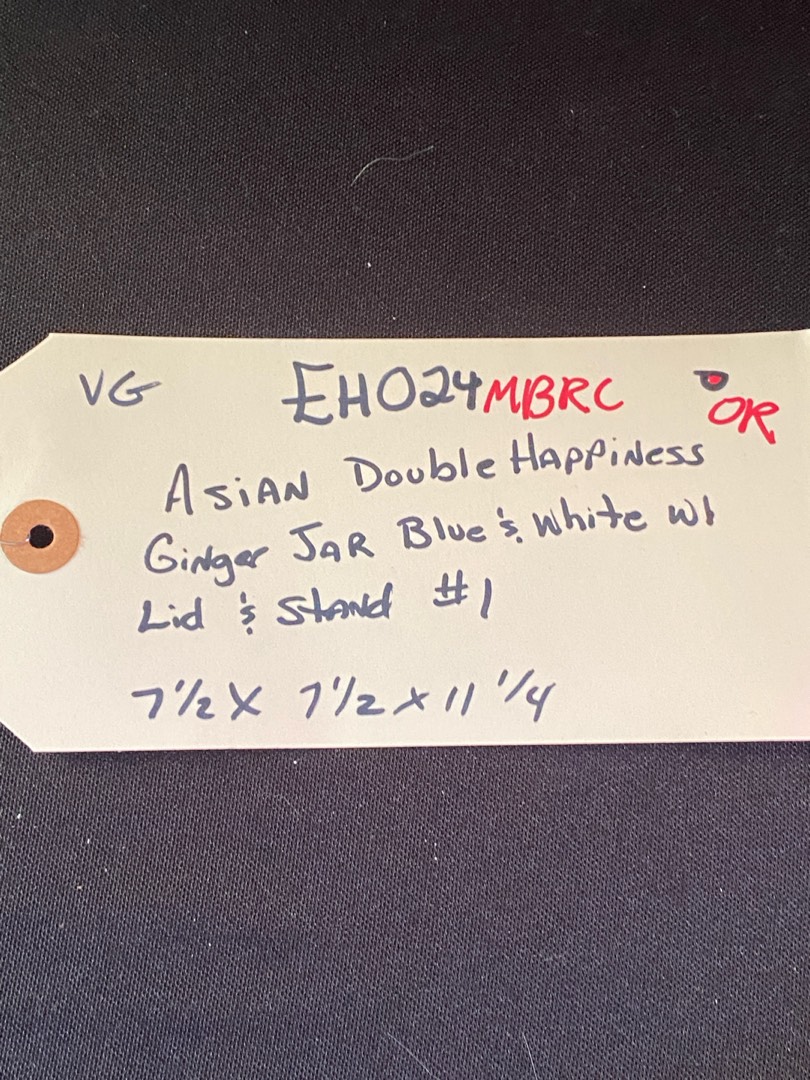 VG EHO24MBRC OR
ASIAN Double HAPPINess
Ginger JAR Blue & White w/
Lid & Stand #1
7 1/2 X 7 1/2 x 11 1/4